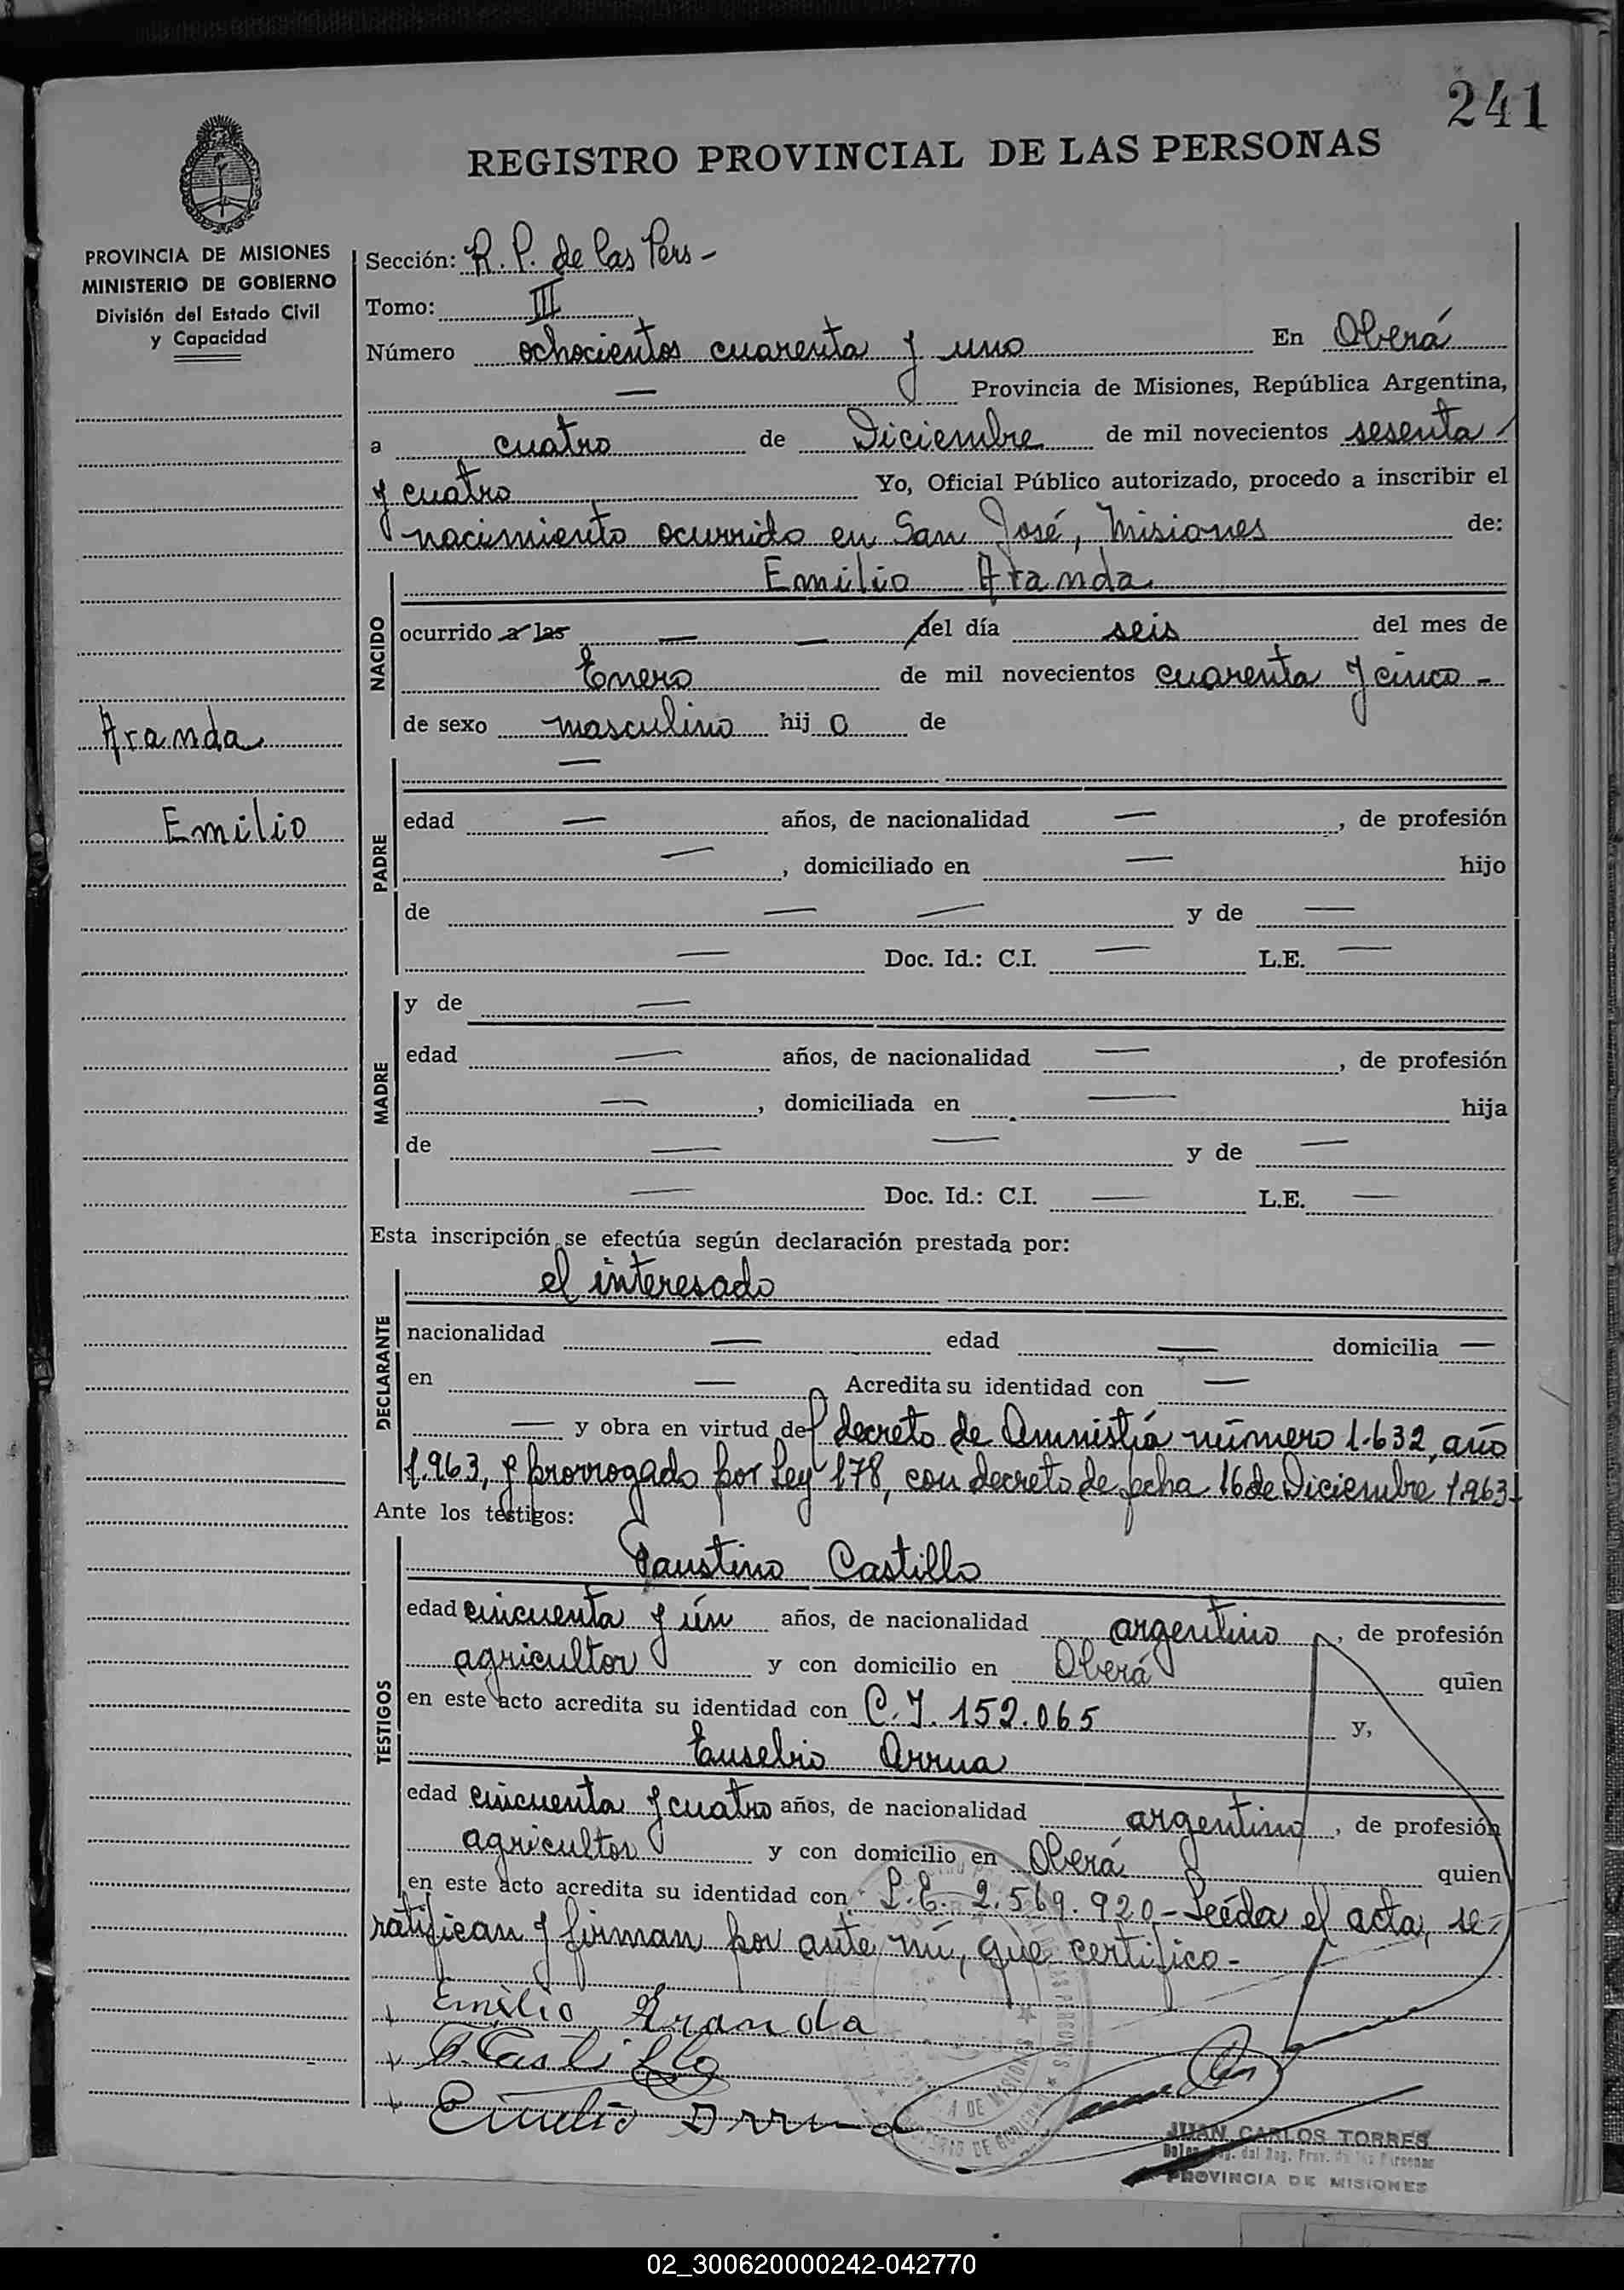 241
REGISTRO PROVINCIAL DE LAS PERSONAS
PROVINCIA DE MISIONES
MINISTERIO DE GOBIERNO
División del Estado Civil
y Capacidad
Aranda
Emilio
Sección: R. P. de las Pers -
Tomo: III
Número ochocientos cuarenta y uno En Oberá
— Provincia de Misiones, República Argentina,
a cuatro de Diciembre de mil novecientos sesenta
y cuatro Yo, Oficial Público autorizado, procedo a inscribir el
nacimiento ocurrido en San José, Misiones de:
NACIDO
Emilio Aranda
ocurrido a las — — del día seis del mes de
Enero de mil novecientos cuarenta y cinco -
de sexo masculino hij o de
PADRE
—
edad — años, de nacionalidad — , de profesión
— , domiciliado en — hijo
de — — y de —
— Doc. Id.: C.I. — L.E. —
MADRE
y de —
edad — años, de nacionalidad — , de profesión
— , domiciliada en — hija
de — — y de —
— Doc. Id.: C.I. — L.E. —
Esta inscripción se efectúa según declaración prestada por:
DECLARANTE
el interesado
nacionalidad — edad — domicilia —
en — Acredita su identidad con —
— y obra en virtud del decreto de Amnistía número 1.632, año
1.963, y prorrogado por Ley 178, con decreto de fecha 16 de Diciembre 1963-
Ante los testigos:
TESTIGOS
Faustino Castillo
edad cincuenta y ún años, de nacionalidad argentino , de profesión
agricultor y con domicilio en Oberá quien
en este acto acredita su identidad con C.I. 152.065 y,
Eusebio Arrua
edad cincuenta y cuatro años, de nacionalidad argentino , de profesión
agricultor y con domicilio en Oberá quien
en este acto acredita su identidad con L.E. 2.569.920 - Leída el acta, se
ratifican y firman por ante mí, que certifico -
Emilio Aranda
F. Castillo
Arrua
JUAN CARLOS TORRES
PROVINCIA DE MISIONES
02_300620000242-042770